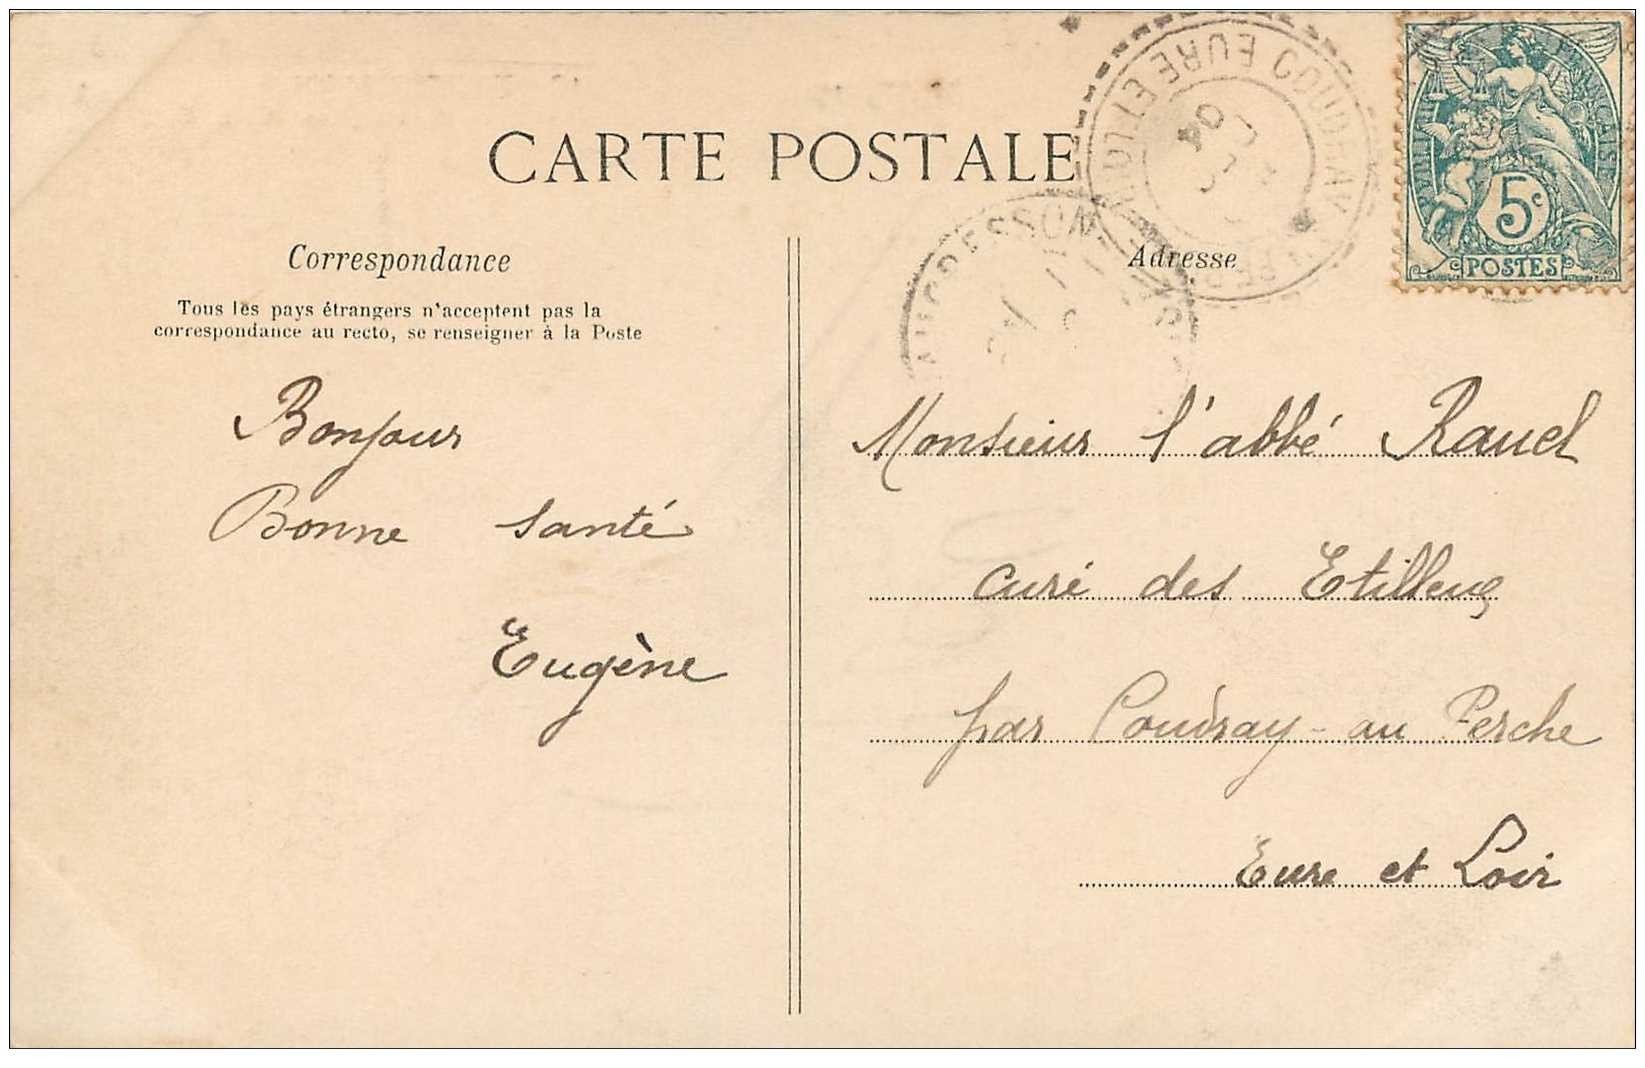 CARTE POSTALE
Correspondance
Tous les pays étrangers n'acceptent pas la
correspondance au recto, se renseigner à la Poste
Bonjour
Bonne santé
Eugène
COUDRAY
EURE ET LOIR
04
Adresse
FRANÇAISE
5c
POSTES
Monsieur l'abbé
curé des Etilleux
par Coudray-au Perche
Eure et Loir